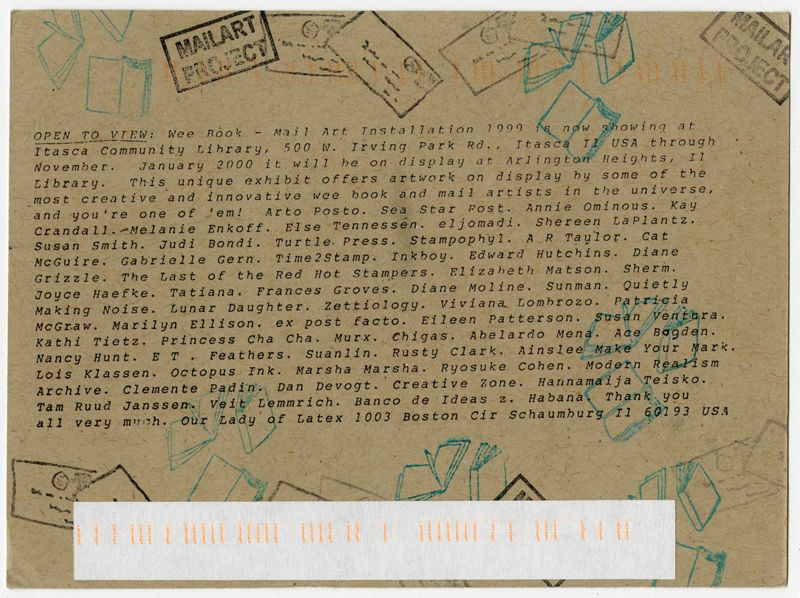 MAILART
PROJECT
MAILART
PROJECT
OPEN TO VIEW: Wee Book - Mail Art Installation 1999 is now showing at
Itasca Community Library, 500 W. Irving Park Rd., Itasca Il USA through
November. January 2000 it will be on display at Arlington Heights, Il
Library. This unique exhibit offers artwork on display by some of the
most creative and innovative wee book and mail artists in the universe,
and you're one of 'em! Arto Posto. Sea Star Post. Annie Ominous. Kay
Crandall. Melanie Enkoff. Else Tennessen. eljomadi. Shereen LaPlantz.
Susan Smith. Judi Bondi. Turtle Press. Stampophyl. A R Taylor. Cat
McGuire. Gabrielle Gern. Time2Stamp. Inkboy. Edward Hutchins. Diane
Grizzle. The Last of the Red Hot Stampers. Elizabeth Matson. Sherm.
Joyce Haefke. Tatiana. Frances Groves. Diane Moline. Sunman. Quietly
Making Noise. Lunar Daughter. Zettiology. Viviana Lombrozo. Patricia
McGraw. Marilyn Ellison. ex post facto. Eileen Patterson. Susan Ventura.
Kathi Tietz. Princess Cha Cha. Murx. Chigas. Abelardo Mena. Ace Bogden.
Nancy Hunt. E T . Feathers. Suanlin. Rusty Clark. Ainslee Make Your Mark.
Lois Klassen. Octopus Ink. Marsha Marsha. Ryosuke Cohen. Modern Realism
Archive. Clemente Padin. Dan Devogt. Creative Zone. Hannamaija Teisko.
Tam Ruud Janssen. Veit Lemmrich. Banco de Ideas z. Habana. Thank you
all very much. Our Lady of Latex 1003 Boston Cir Schaumburg Il 60193 USA